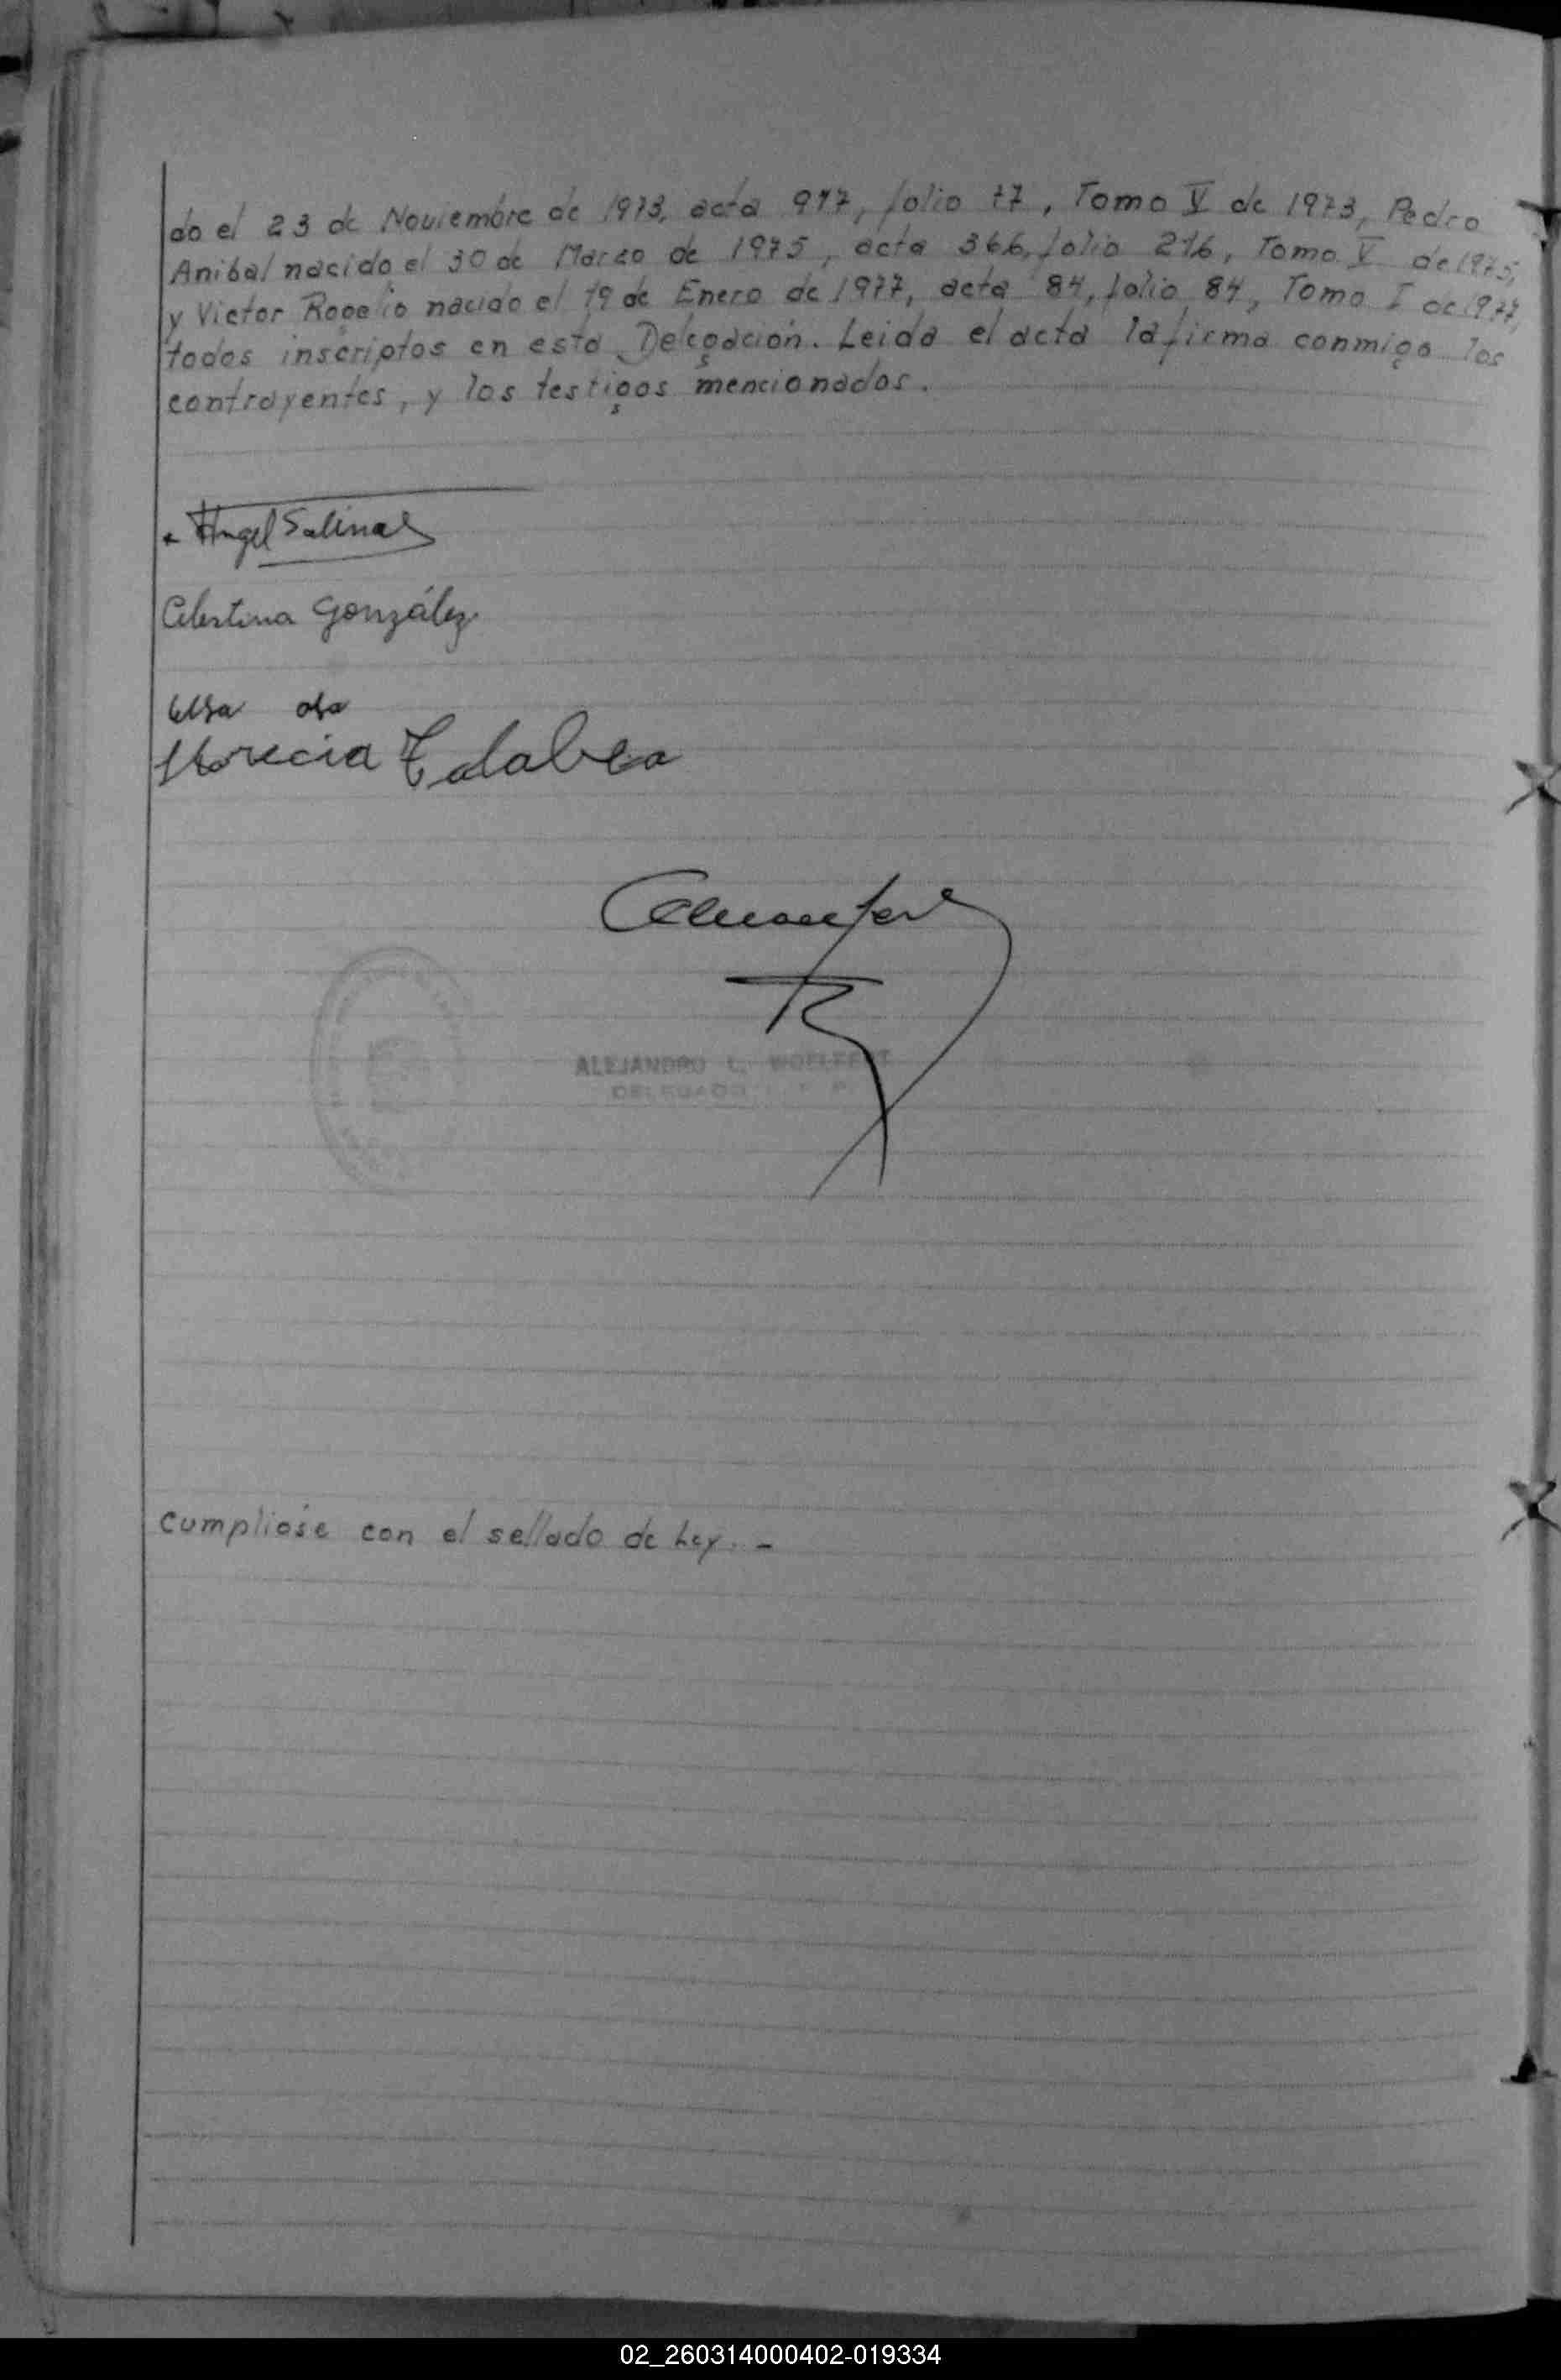 do el 23 de Noviembre de 1973, acta 917, folio 17, Tomo V de 1973, Pedro
Anibal nacido el 30 de Marzo de 1975, acta 366, folio 216, Tomo V de 1975,
y Victor Rogelio nacido el 19 de Enero de 1977, acta 84, folio 84, Tomo I de 1977,
todos inscriptos en esta Delegación. Leida el acta la firma conmigo los
contrayentes, y los testigos mencionados.
Angel Salinas
Celestina González
Elsa
Talabea
ALEJANDRO L. WOELFERT
DELEGADO
cumplióse con el sellado de Ley. -
02_260314000402-019334